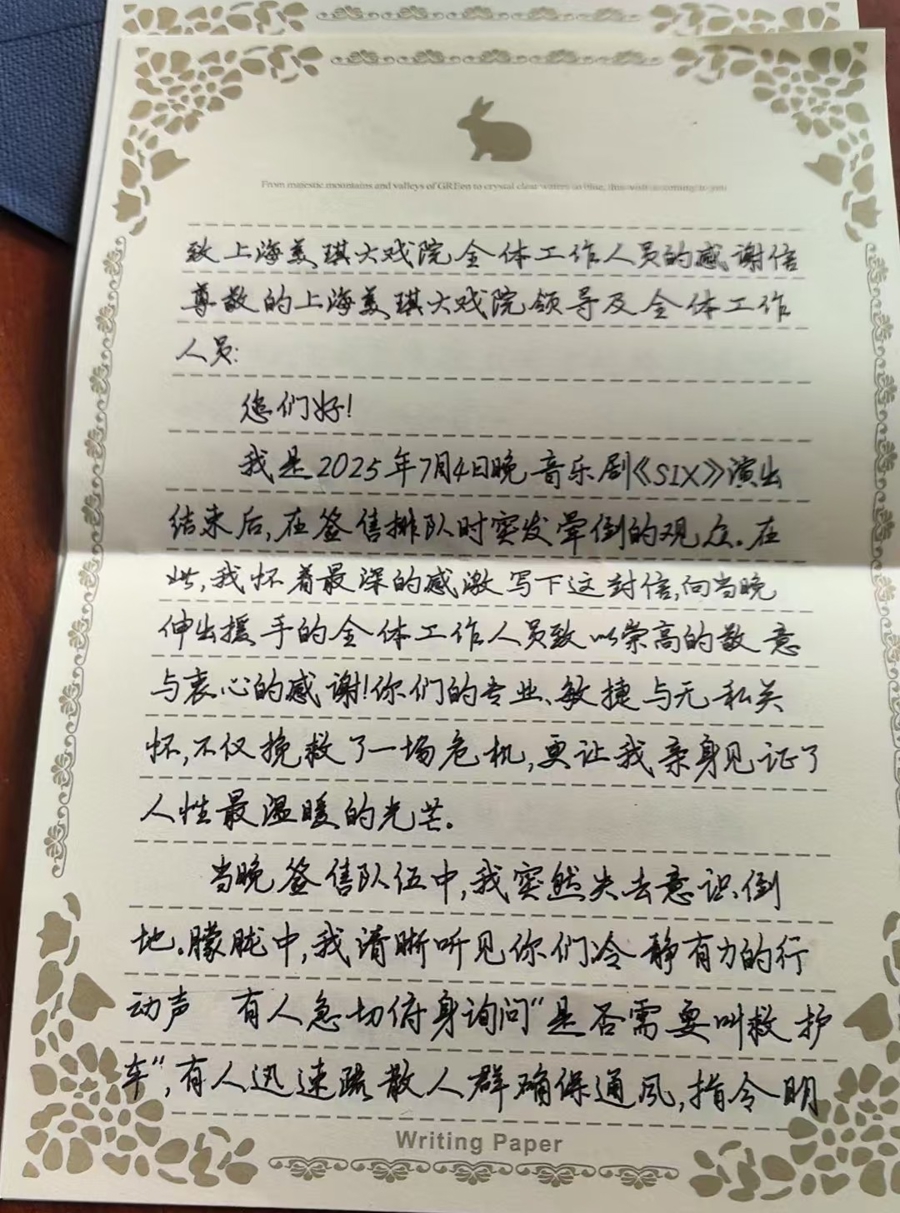 From majestic mountains and valleys of GREen to crystal clear waters so blue, this wish is coming to you
致上海美琪大戏院全体工作人员的感谢信
尊敬的上海美琪大戏院领导及全体工作
人员:
您们好!
我是2025年7月4日晚音乐剧《SIX》演出
结束后,在签售排队时突发晕倒的观众。在
此,我怀着最深的感激写下这封信,向当晚
伸出援手的全体工作人员致以崇高的敬意
与衷心的感谢!你们的专业、敏捷与无私关
怀,不仅挽救了一场危机,更让我亲身见证了
人性最温暖的光芒。
当晚签售队伍中,我突然失去意识倒
地。朦胧中,我清晰听见你们冷静有力的行
动声 有人急切俯身询问“是否需要叫救护
车”,有人迅速疏散人群确保通风,指令明
Writing Paper